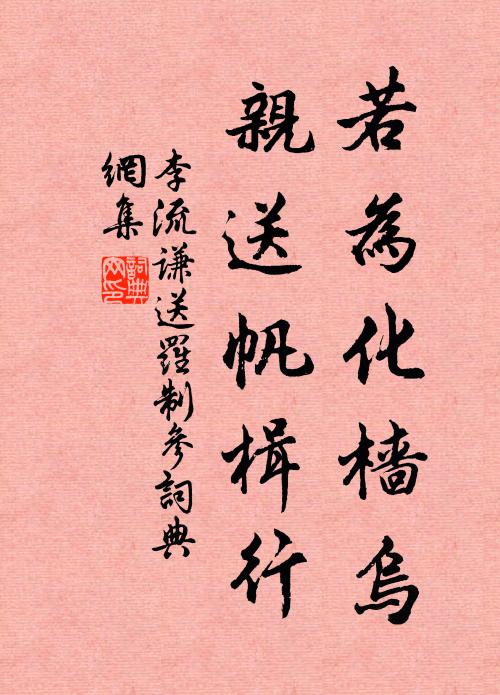 若為化檣烏
親送帆楫行
李流謙送羅制參詞典
網集
詞典
网印